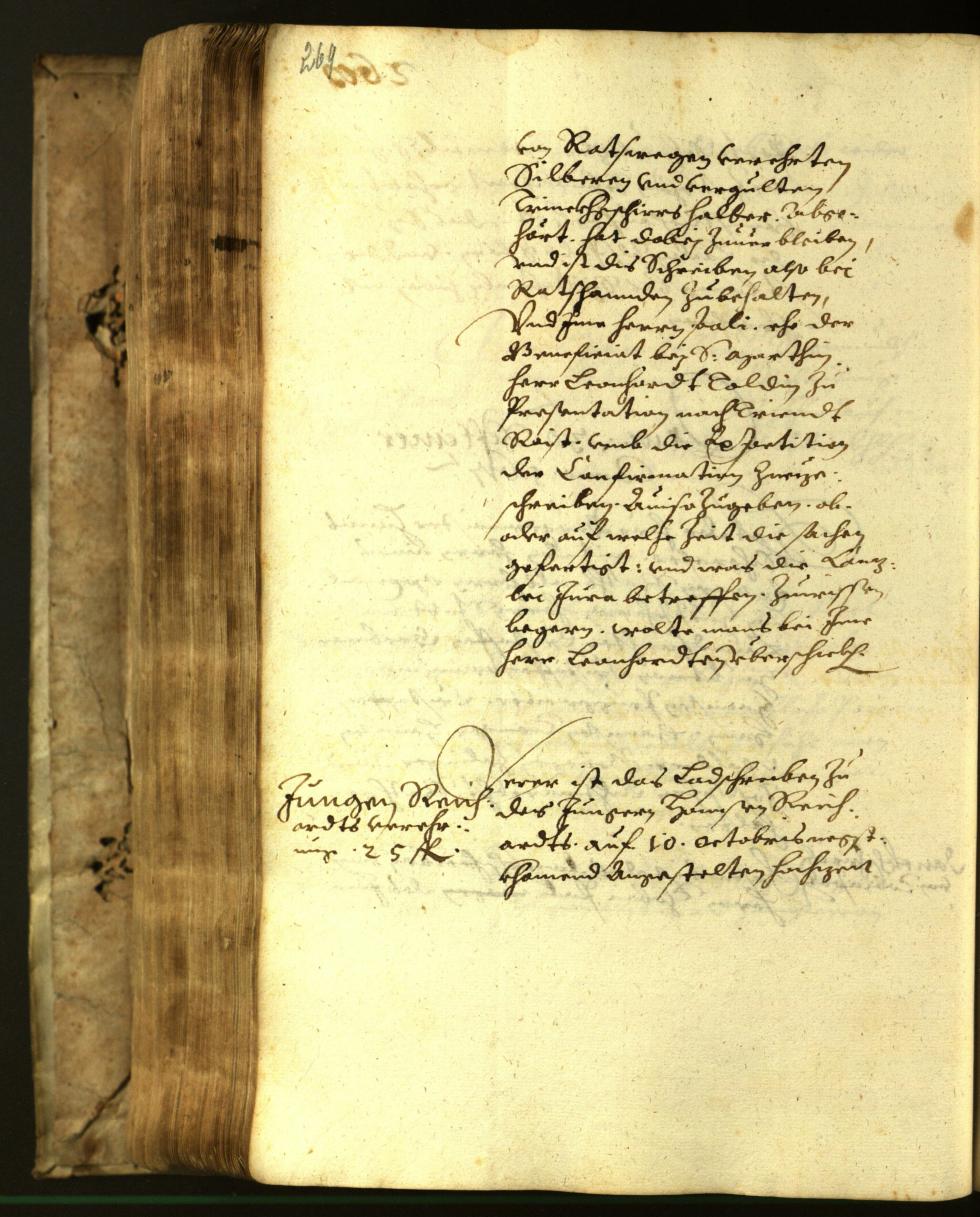 269
von Ratswegen verehrten
Silberen vnd vergulten
Trinckhgschirrs halber. Abge-
hört. hat dabej zuuerbleiben,
vnd ist dis Schreiben also bei
Ratshannden zubehalten,
Vnd Ime herrn . ehe der
Beneficiat bej S:
herr Leonhardt zu
Presentation nach Triendt
Raist. vmb die Expetition
der Confirmation zueze:
schreiben. Auiso zugeben. ob.
oder auf welche Zeit die sachen
gefertigt: vnd was die Canz:
lei Jura betreffen. zuwissen
begern. wolte mans bei Ime
herr Leonhardten vberschickh.
Jungen Reich:
ardts verehr:
ung. 25 fl.
Verer ist das Ladschreiben zu
des Jungern Hannsen Reich:
ardts. auf 10. Octobris negst:
khomend Angestelten hochzeit